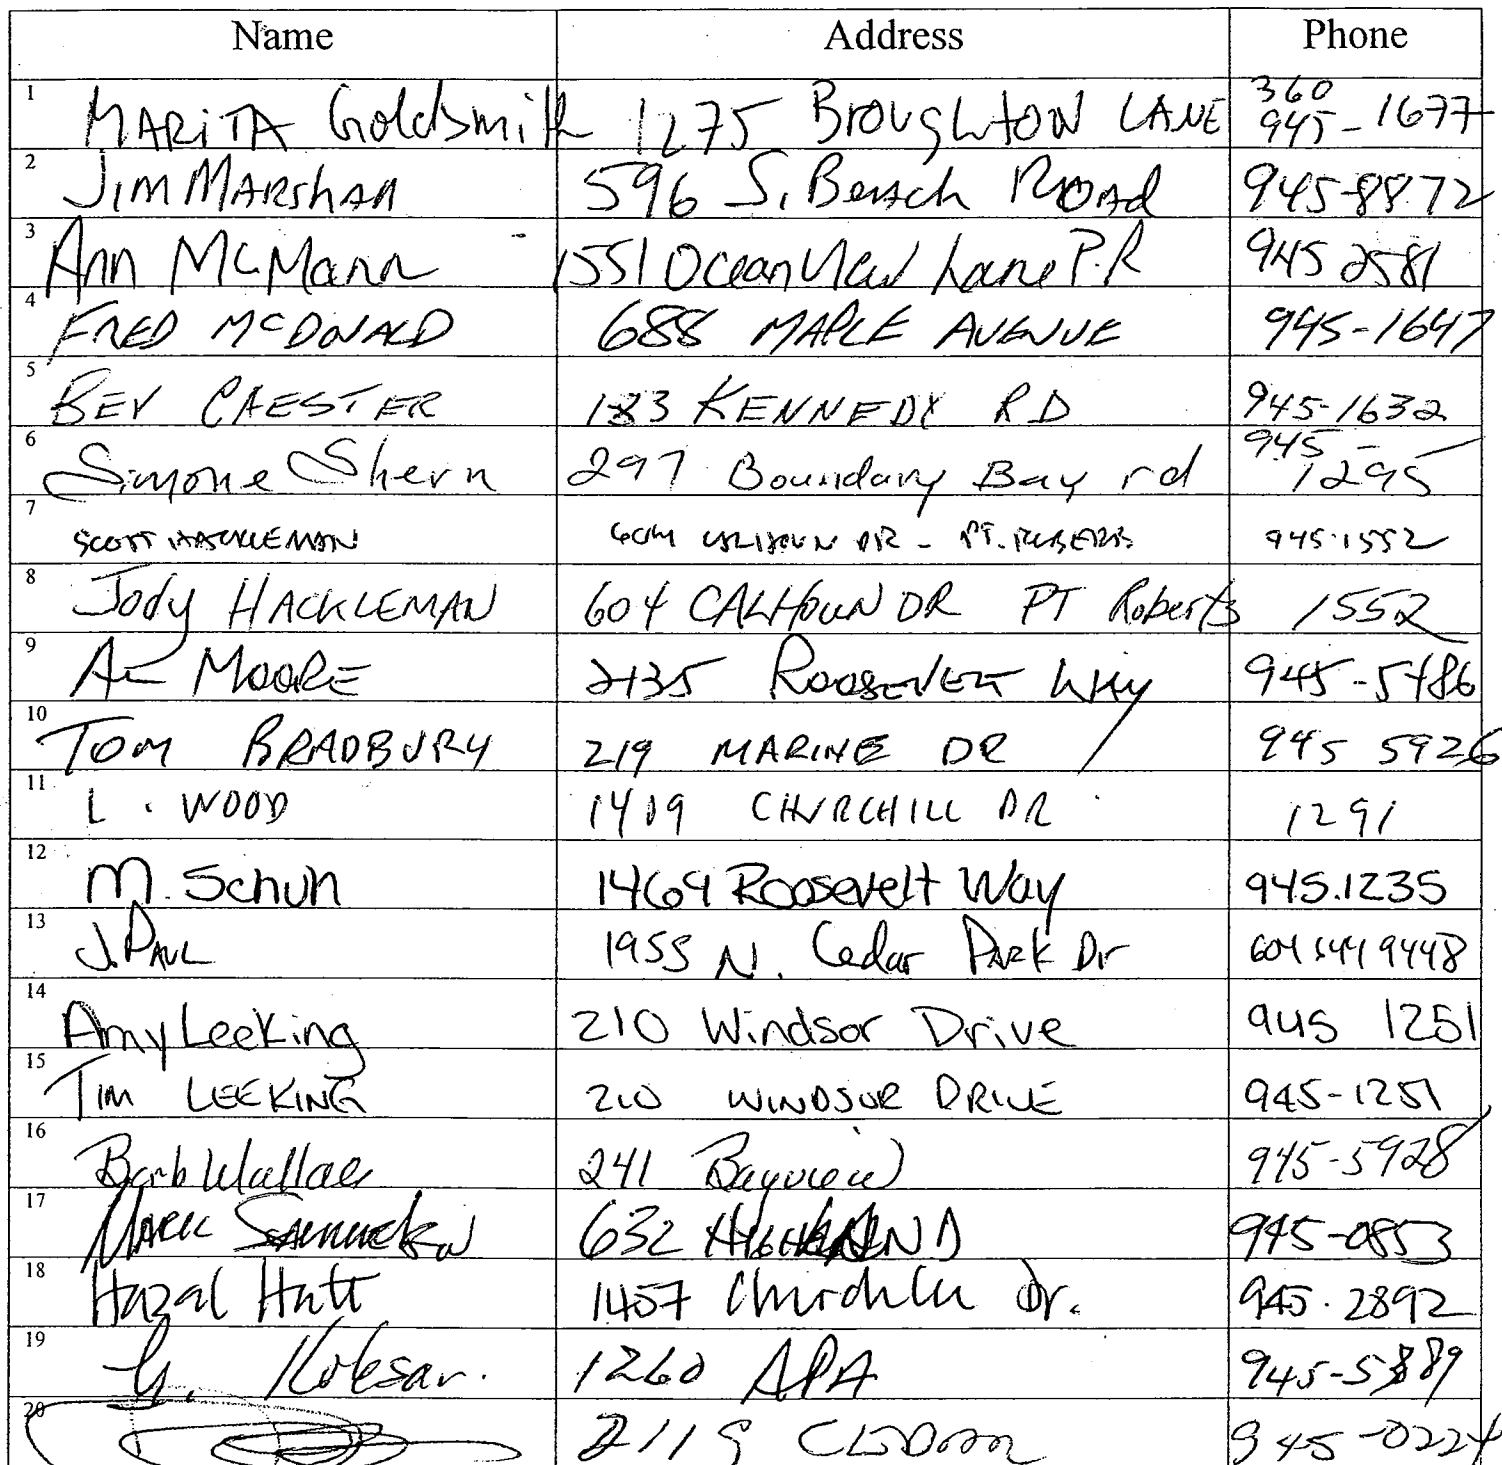 Name Address Phone
1 MARITA Goldsmith 1275 BROUGHTON LANE 360 945-1677
2 JIM MARSHALL 596 S. Beach Road 945-8872
3 Ann McMann 1551 Ocean View Lane P.R 945 2581
4 FRED MCDONALD 688 MAPLE AVENUE 945-1647
5 BEV CHESTER 183 KENNEDY RD 945-1632
6 Simone Shern 297 Boundary Bay rd 945-1295
7 SCOTT HACKLEMAN 604 CALHOUN DR - PT. ROBERTS 945-1552
8 Jody HACKLEMAN 604 CALHOUN DR PT Roberts 1552
9 MOORE 2135 ROOSEVELT WAY 945-5486
10 TOM BRADBURY 219 MARINE DR 945 5926
11 L. WOOD 1419 CHURCHILL DR 1291
12 M. Schuh 1469 Roosevelt Way 945.1235
13 J. PAUL 1955 N. Cedar PARK Dr 604 9448
14 Amy Leeking 210 Windsor Drive 945 1251
15 TIM LEEKING 210 WINDSOR DRIVE 945-1251
16 Barb Wallace 241 Bayview 945-5928
17 MARK 632 HIGHLAND 945-0853
18 Hazal Hutt 1457 Churchill Dr. 945.2892
19 G. Kolesar. 1260 APA 945-5889
20 2119 945-0224